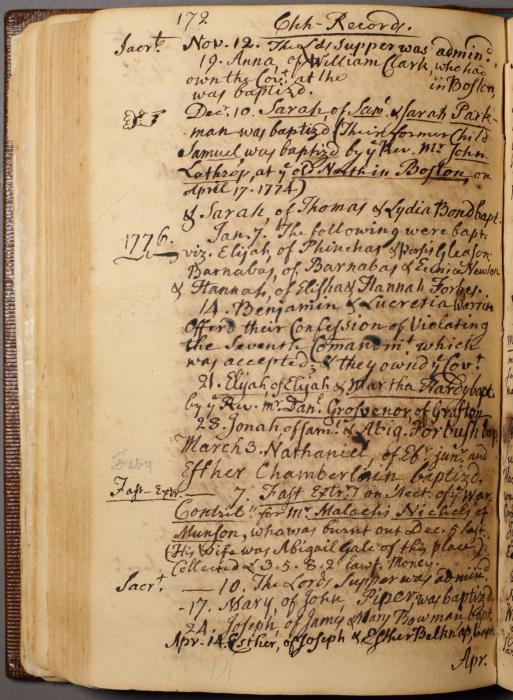 172 Chh-Records.
Sacrt. Nov. 12. The Lds Supper was admind.
19. Anna, of William Clark, who had
own the Covt. at the in Boston,
was baptizd.
Decr. 10. Sarah, of Saml. & Sarah Park-
-man was baptizd (Their former Child
Samuel, was baptizd by ye Rev. Mr. John
Lathrop, at ye old North in Boston, on
April 17. 1774)
& Sarah, of Thomas & Lydia Bond bapt.
1776. Jan. 7. The following were bapt.
viz. Elijah, of Phinehas & Persis Gleason.
Barnabas, of Barnabas & Eunice Newton
& Hannah, of Elisha & Hannah Forbes.
14. Benjamin & Lucretia Warrin
Offerd their Confession of Violating
the Seventh Comandmt. which
was accepted, & they ownd ye Covt.
21. Elijah, of Elijah & Martha Hardy bapt.
by ye Rev. Mr. Danl. Grosvenor of Grafton
28. Jonah of Saml. & Abig. Forbush bap
March 3. Nathaniel, of Ebr. junr. and
Esther Chamberlain baptizd.
Fast-Extr. — 7. Fast Extry. on Acct. of ye War
Contribn. for Mr. Malachi Nichols of
Munson, who was burnt out Dec. 5 last.
(His Wife was Abigail Gale of this place)
Collected £ 3. 5. 8. 2 lawf. Money.
Sacrt. — 10. The Lords Supper was admind
-17. Mary, of John Piper, was baptizd.
24. Joseph, of James & Mary Bowman bapt.
Apr. 14. Esther, of Joseph & Esther Belknap, bapt.
Apr.